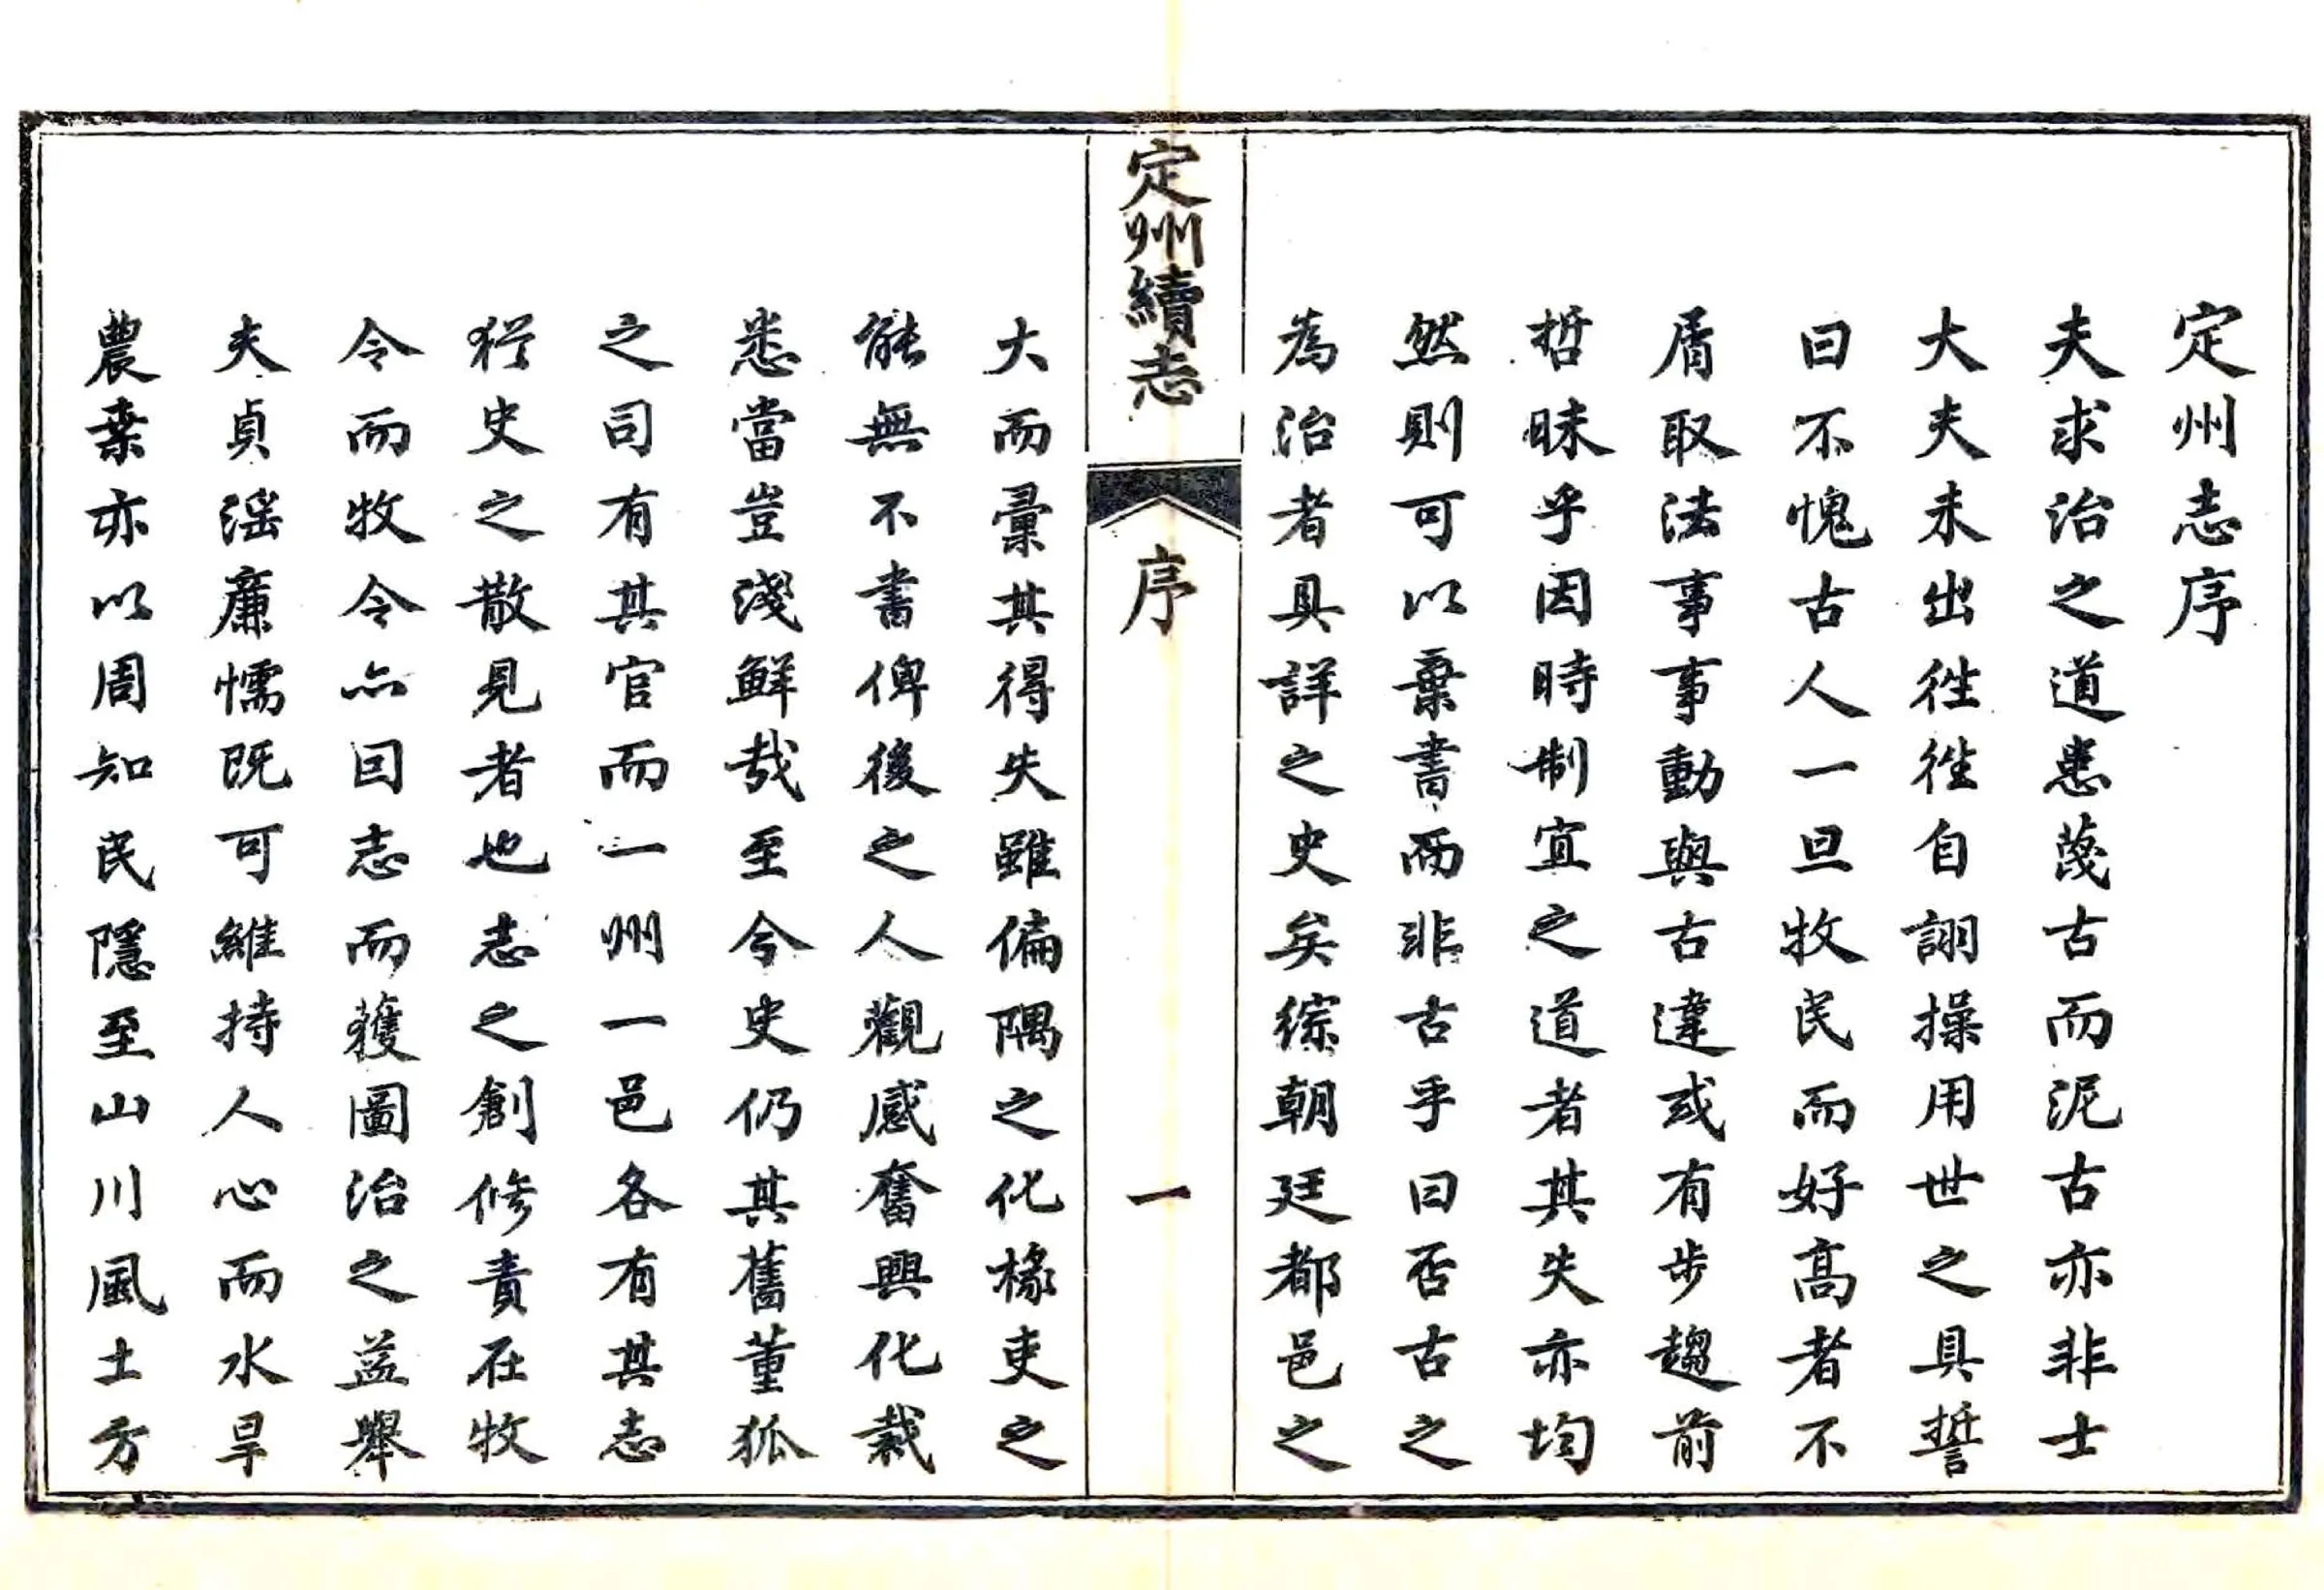 定州志序
夫求治之道患蔑古而泥古亦非士
大夫未出徃徃自詡操用世之具誓
曰不愧古人一旦牧民而好髙者不
屑取法事事動與古違或有步趨前
哲昧乎因時制宜之道者其失亦均
然則可以棄書而非古乎曰否古之
為治者具詳之史矣綜朝廷都邑之
定州續志
序
一
大而彙其得失雖偏隅之化椽吏之
能無不書俾後之人觀感奮興化裁
悉當豈淺鮮哉至今史仍其舊董狐
之司有其官而一州一邑各有其志
猶史之散見者也志之創修責在牧
令而牧令亦囙志而獲圖治之益舉
夫貞滛廉懦既可維持人心而水旱
農桒亦以周知民隱至山川風土方